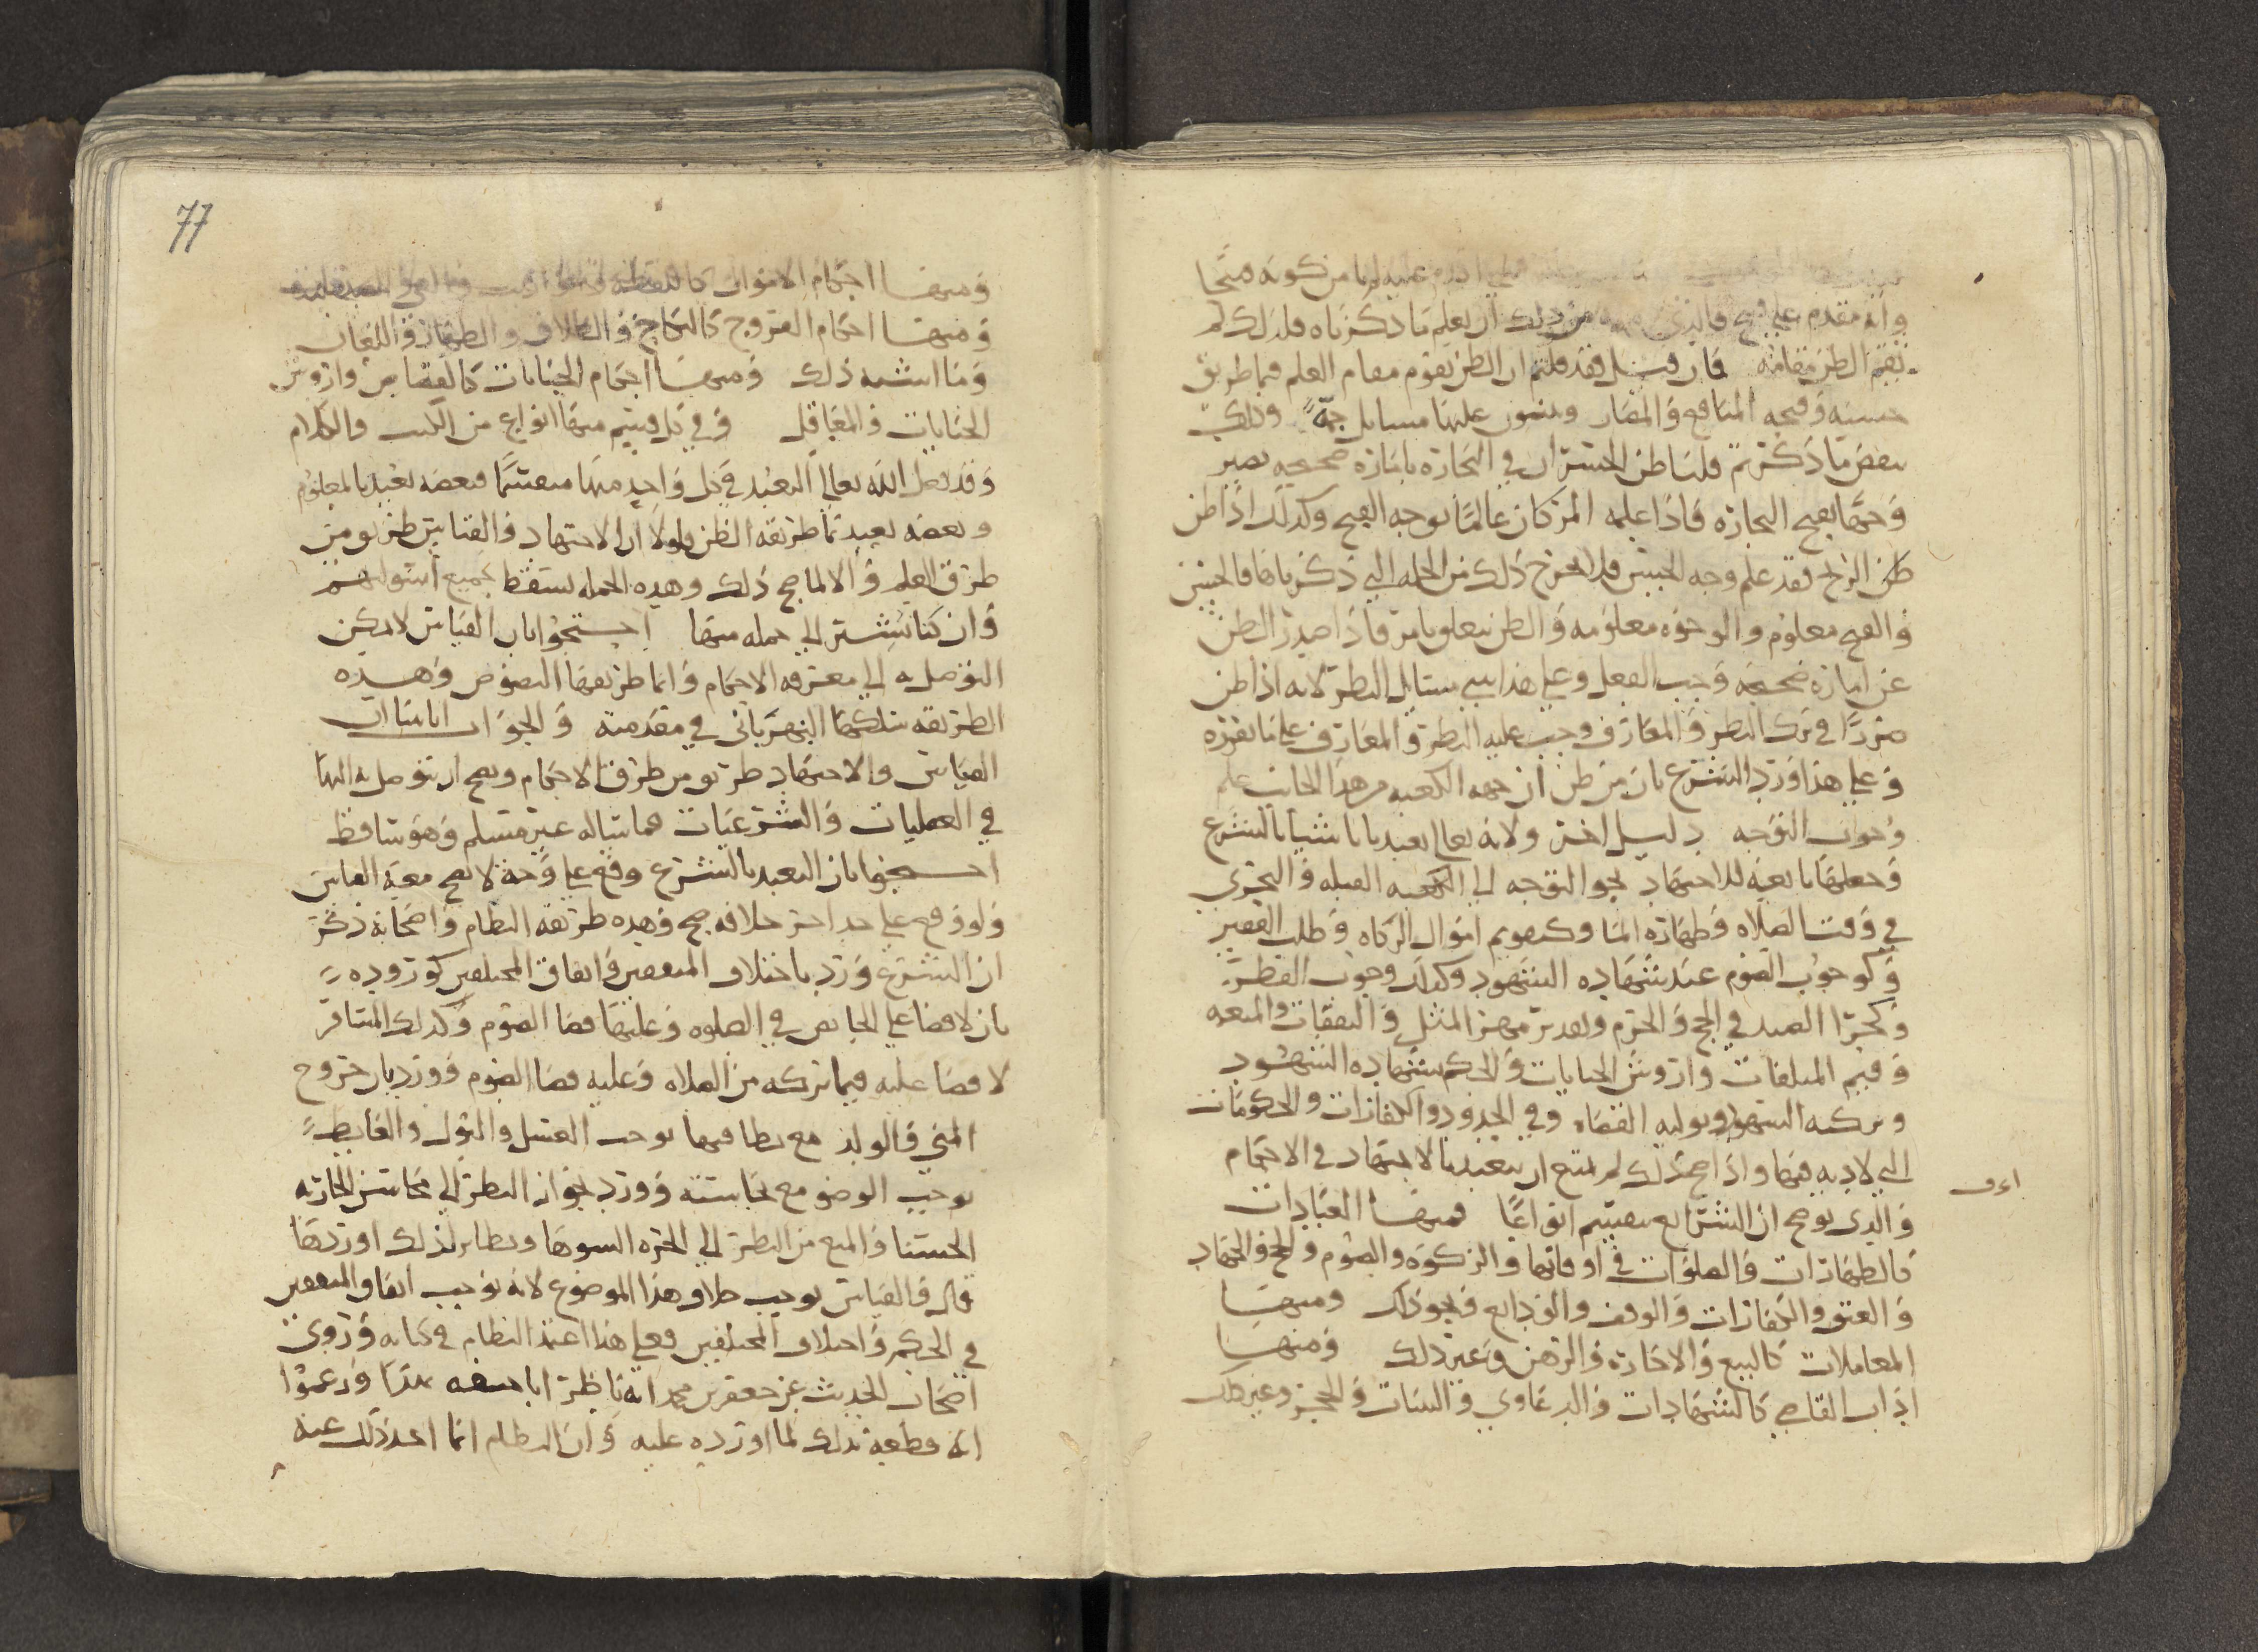 عليه لما من كونه قبيحا
وانه مقدم على قبيح والذي من ذلك ان يعلم ما ذكرناه فلذلك لم
يقم الظن مقامه فان قيل فقد قلتم ان الظن يقوم مقام العلم فيما طريق
حسنه وقبحه المنافع والمضار وتبنون عليها مسايل جمة وذلك
بعض ما ذكرتم قلنا ظن الخسران في التجارة بامارة صحيحه يصير
وجها يقبح التجارة فاذا علمه المرء كان عالما بوجه القبح وكذلك اذا ظن
ظن الربح فقد علم وجه الحسن فلم يخرج ذلك من الجملة التي ذكرناها فالحسن
والقبح معلوم والوجوه معلومه والظن يتعلق بامر فاذا صدر الظن
عن امارة صحيحة وجب الفعل وعلى هذا نبني مسايل النظر لانه اذا ظن
ضررا في ترك النظر والمعارف وجب عليه النظر والمعارف على ما نقرره
وعلى هذا ورد الشرع بان من ظن ان جهه الكعبه من هذا الجانب علم
وجوب التوجه دليل اخر ولانه تعالى تعبدنا باشيا بالشرع
وجعلها تابعة للاجتهاد نحو التوجه الى الكعبه القبله والتحري
في وقت الصلاه وطهارة الما وكتقويم اموال الزكاه وطلب الفقير
وكوجوب الصوم عند شهاده الشهود وكذلك وجوب الفطر
وكجزا الصيد في الحج والحرم وتقدير مهر المثل والنفقات والمتعه
وقيم المتلفات واروش الجنايات والحكم بشهاده الشهود
وتزكيه الشهود وتوليه القضاه وفي الحدود والكفارات والحكومات
التي لا دية فيها واذا صح ذلك لم يمتنع ان يتعبدنا بالاجتهاد في الاحكام
والذي يوضح ان الشرايع تنقسم انواعا فمنها العبادات
كالطهارات والصلوات في اوقاتها والزكوة والصوم والحج والجهاد
والعتق والكفارات والوقف والودايع ونحو ذلك ومنها
المعاملات كالبيع والاجارة والرهن وغير ذلك ومنها
اداب القاضي كالشهادات والدعاوي والبينات والحجر وغير ذلك
77
ومنها احكام الاموات
ومنها احكام الفروج كالنكاح والطلاق والظهار واللعان
وما اشبه ذلك ومنها احكام الجنايات كالقصاص واروش
الجنايات والمعاقل وفي كل قسم منها انواع من الكتب والكلام
وقد جعل الله تعالى التعبد في كل واحد منها منقسما فبعضه تعبد بالمعلوم
وبعضه تعبدنا طريقه الظن ولولا ان الاجتهاد والقياس طريق من
طرق العلم والا لما صح ذلك وهذه الجمله تسقط جميع اسولتهم
وان كنا نشير الى جمله منها احتجوا بان القياس لا يمكن
التوصل به الى معرفه الاحكام وانما طريقها النصوص وهذه
الطريقه سلكها النهرباني في مقدمته والجواب انا بينا ان
القياس والاجتهاد طريق من طرق الاحكام ويصح ان يتوصل به اليها
في العقليات والشرعيات فما سأله غير مسلم وهو ساقط
احتجوا بان التعبد بالشرع وقع على وجه لا يصح معه القياس
ولو وقع على حد اخر خلافه صح وهذه طريقه النظام واصحابه ذكر
ان الشرع ورد باختلاف المتفقين واتفاق المختلفين كوروده
بان لا قضا على الحايض في الصلوه وعليها قضا الصوم وكذلك المسافر
لا قضا عليه فيما تركه من الصلاه وعليه قضا الصوم وورد بان خروج
المني والولد مع نظافتهما يوجب الغسل والبول والغايط
يوجب الوضو مع نجاسته وورد بجواز النظر الى محاسن الجاريه
الحسنا والمنع من النظر الى الحره الشوها ونظاير لذلك اوردها
قال والقياس يوجب خلاف هذا الموضوع لانه يوجب اتفاق المتفقين
في الحكم واختلاف المختلفين وعلى هذا اعتمد النظام في كتابه وروى
اصحاب الحديث عن جعفر بن محمد انه ناظر ابا حنيفه بهذا وزعموا
انه قطعه بذلك لما اورده عليه وان النظام انما اخذ ذلك عنه